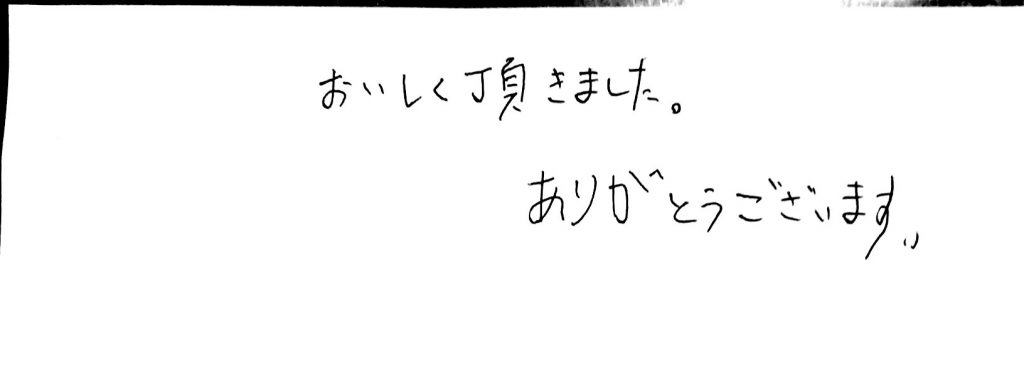 おいしく頂きました。
ありがとうございます。